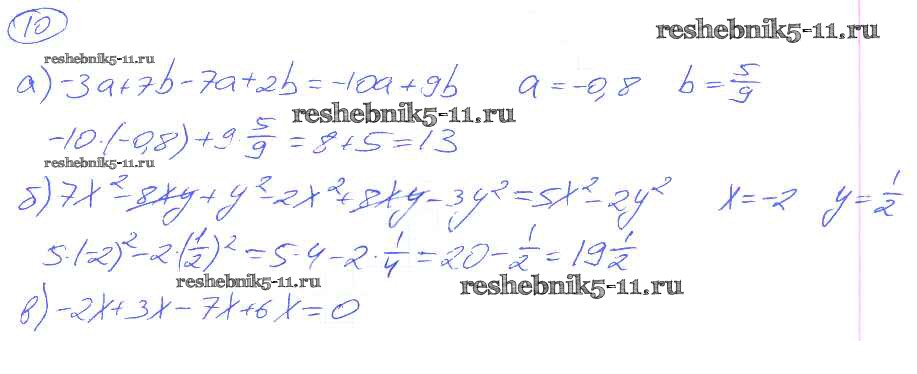 10
reshebnik5-11.ru
reshebnik5-11.ru
а) -3a+7b-7a+2b=-10a+9b a=-0,8 b=5/9
reshebnik5-11.ru
-10·(-0,8)+9·5/9=8+5=13
reshebnik5-11.ru
б) 7x²-8xy+y²-2x²+8xy-3y²=5x²-2y² x=-2 y=1/2
5·(-2)²-2·(1/2)²=5·4-2·1/4=20-1/2=19 1/2
reshebnik5-11.ru
reshebnik5-11.ru
в) -2x+3x-7x+6x=0